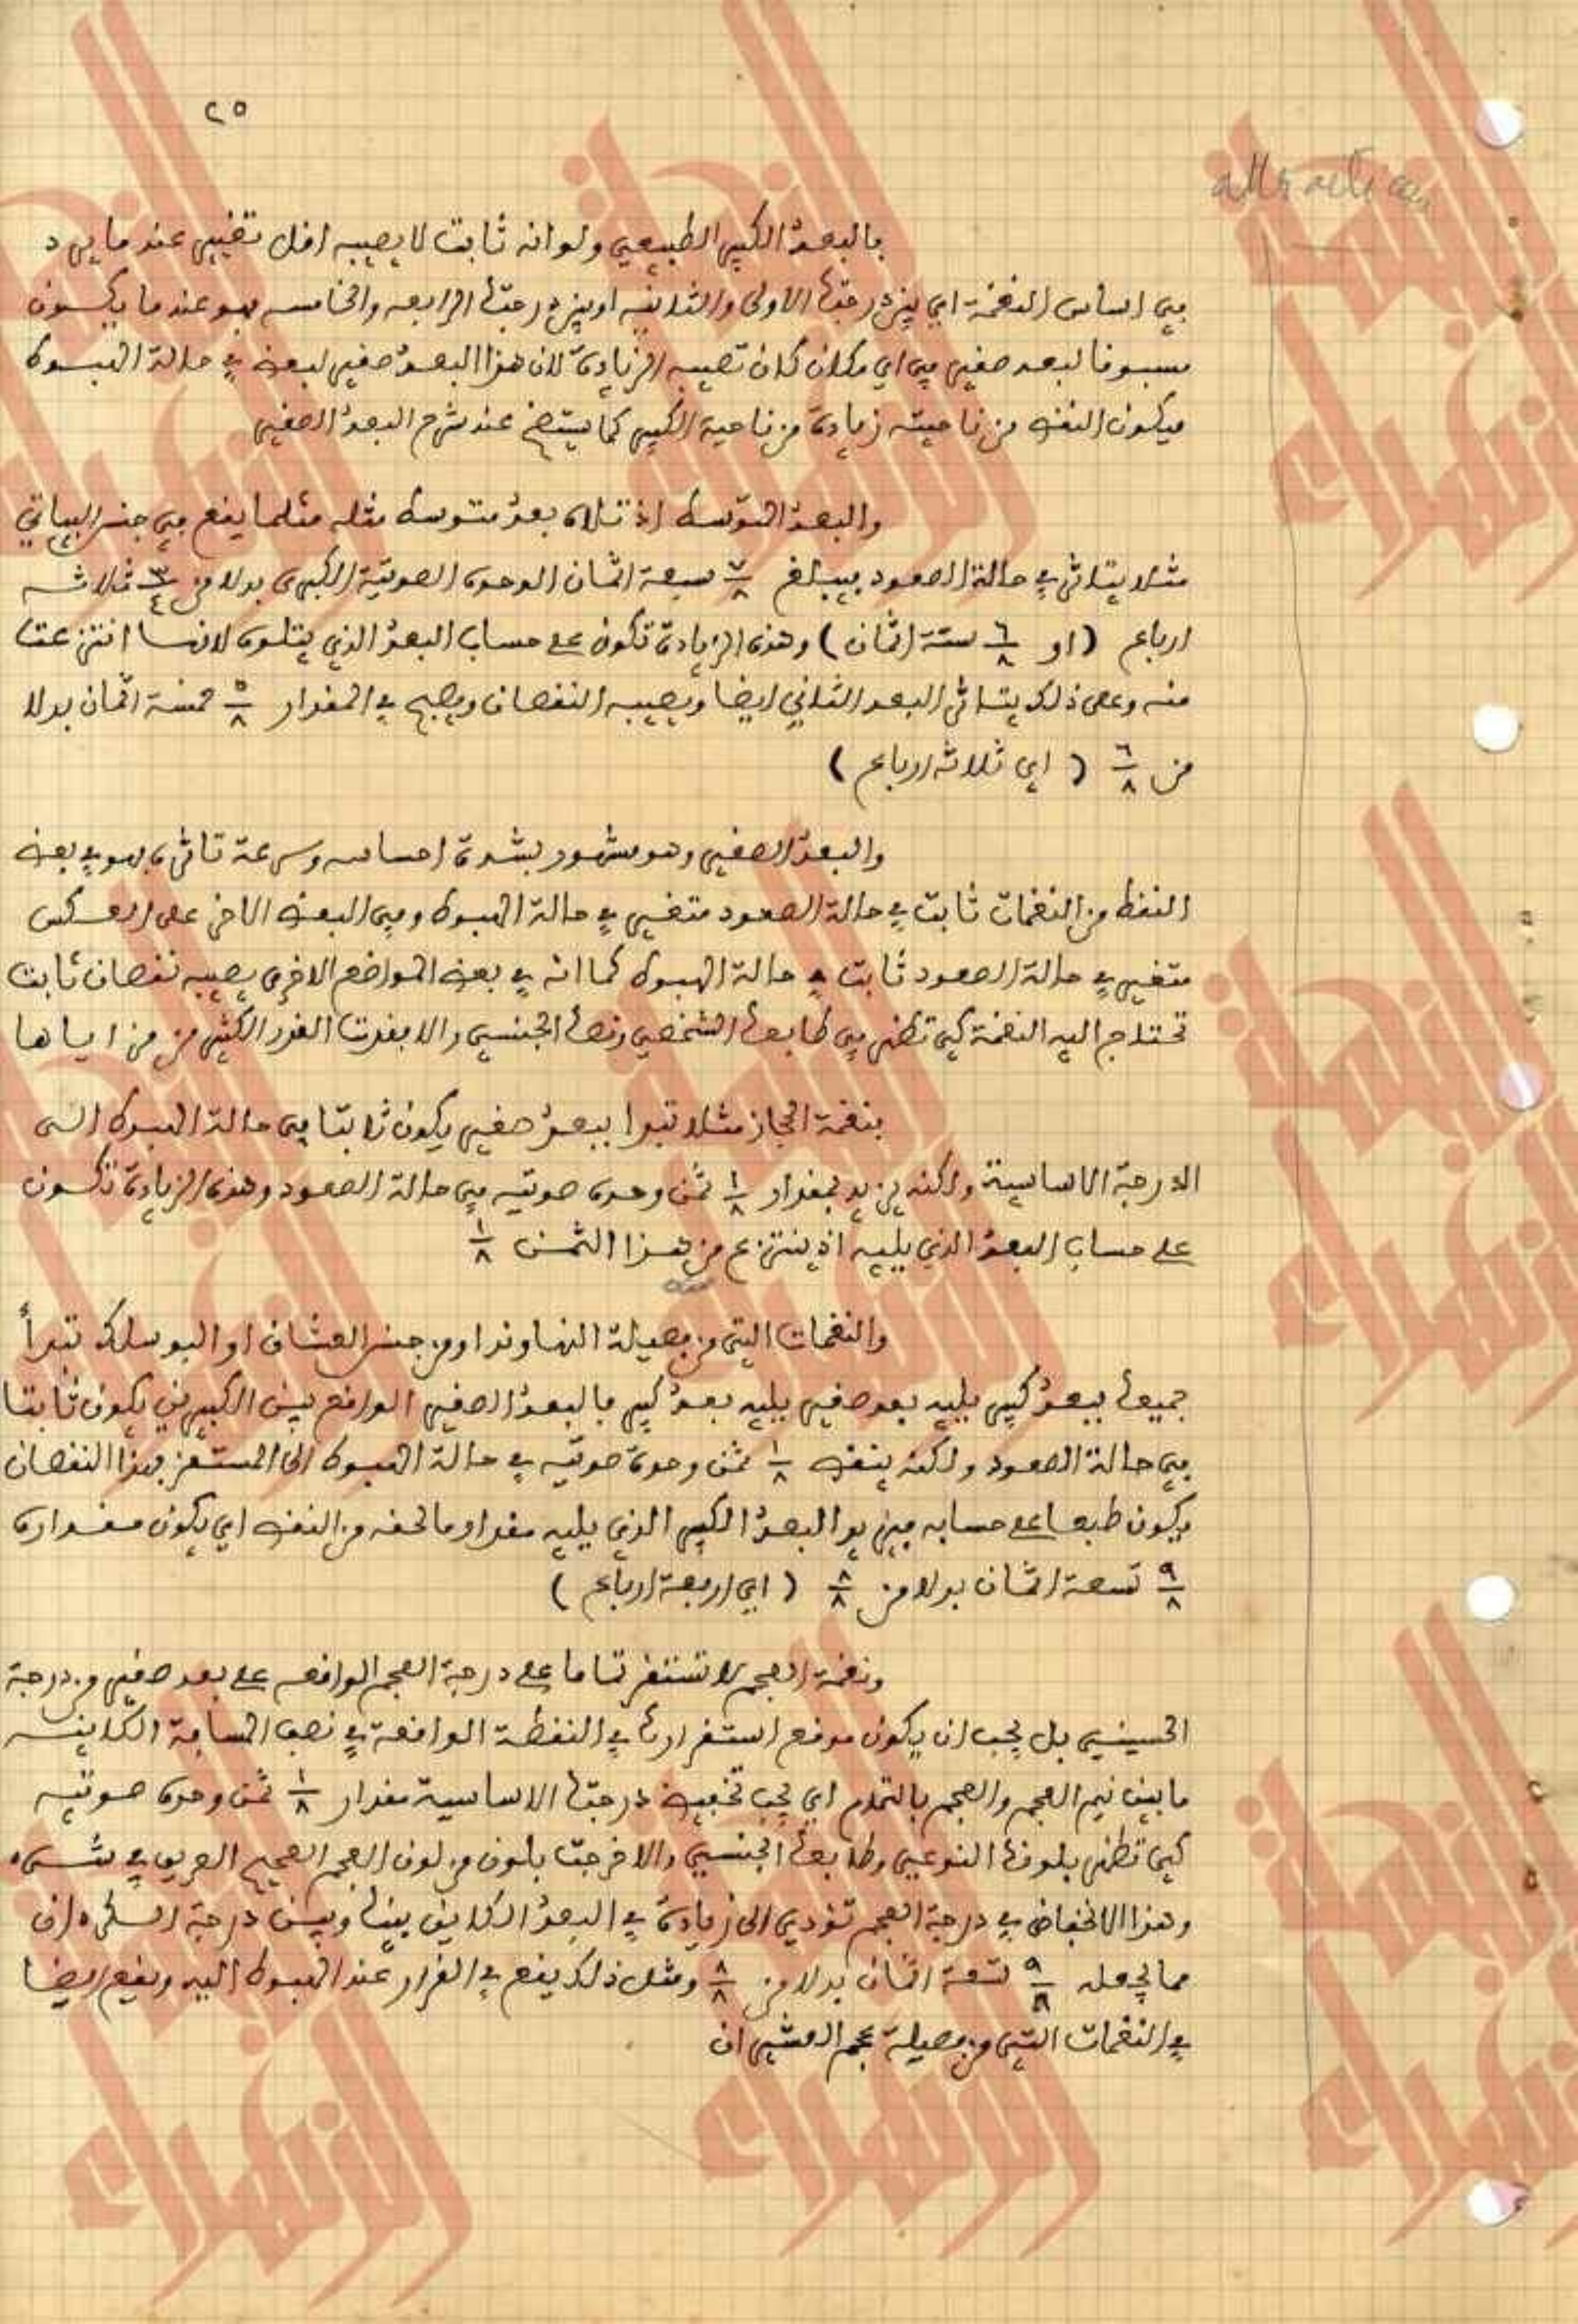 ٢٥
attraction
فالبعد الكبير الطبيعي ولو انه ثابت لا يصيبه اقل تغيير عندما يرد
في اساس النغمة اي بين درجتها الاولى والثانية او بين درجتها الرابعه والخامسه فهو عندما يكون
مسبوقا لبعد صغير في اي مكان كان تصيبه الزيادة لان هذا البعد الصغير لبعضه في حالة الهبوط
فيكون النقص من ناحيته زيادة من ناحية الكبير كما يتضح عند شرح البعد الصغير
والبعد المتوسط اذ تلاه بعد متوسط مثله مثلما يقع في جنس البياتي
مثلا يتأثر في حالة الصعود فيبلغ ٧/٨ سبعة اثمان الوحدة الصوتية الكبرى بدلا من ٣/٤ ثلاثه
ارباع (او ٦/٨ ستة اثمان) وهذه الزيادة تكون على حساب البعد الذي يتلوه لانها انتزعت
منه وعلى ذلك يتأثر البعد الثاني ايضا ويصيبه النقصان ويصبح في المقدار ٥/٨ خمسة اثمان بدلا
من ٦/٨ (اي ثلاثه ارباع)
والبعد الصغير وهو مشهور بشدة احساسه وسرعة تأثره فهو في بعض
النقط من النغمات ثابت في حالة الصعود متغير في حالة الهبوط وفي البعض الاخر على العكس
متغير في حالة الصعود ثابت في حالة الهبوط كما انه في بعض المواضع الاخرى يصيبه نقصان ثابت
تحتاج اليه النغمة كي تظهر في طابعها الشخصي ونصها الجنسي والا فقدت القدر الكثير من مزاياها
فنغمة الحجاز مثلا تبدا ببعد صغير يكون ثابتا في حالة الهبوط الى
الدرجة الاساسية ولكنه يزيد بمقدار ١/٨ ثمن وحدة صوتيه في حالة الصعود وهذه الزيادة تكون
على حساب البعد الذي يليه اذ ينتزع من هذا الثمن ١/٨
والنغمات التي من فصيلة النهاوند او من جنس العشاق او البوسلك تبدأ
جميعها ببعد كبير يليه بعد صغير يليه بعد كبير فالبعد الصغير الواقع بين الكبيرين يكون ثابتا
في حالة الصعود ولكنه ينقص ١/٨ ثمن وحدة صوتيه في حالة الهبوط الى المستقر فهذا النقصان
يكون طبعا على حسابه فيزيد البعد الكبير الذي يليه مقدار ما لحقه من النقص اي يكون مقداره
٩/٨ تسعة اثمان بدلا من ٨/٨ (اي اربعة ارباع)
ونغمة العجم لا تستقر تماما على درجة العجم الواقعه على بعد صغير من درجة
الحسيني بل يجب ان يكون موقع استقرارها في النقطة الواقعة في نصف المسافة الكاينه
ما بين نيم العجم والعجم بالتمام اي يجب تخفيض درجتها الاساسية مقدار ١/٨ ثمن وحدة صوتيه
كي تظهر بلونها النوعي وطابعها الجنسي والا خرجت بلون من لون العجم الصحيح العريق في شيء
وهذا الانخفاض في درجة العجم تؤدي الى زيادة في البعد الكاين بينها وبين درجة الكردان
مما يجعله ٩/٨ تسعة اثمان بدلا من ٨/٨ ومثل ذلك يقع في القرار عند الهبوط اليه ويقع ايضا
في النغمات التي من فصيلة عجم العشيران